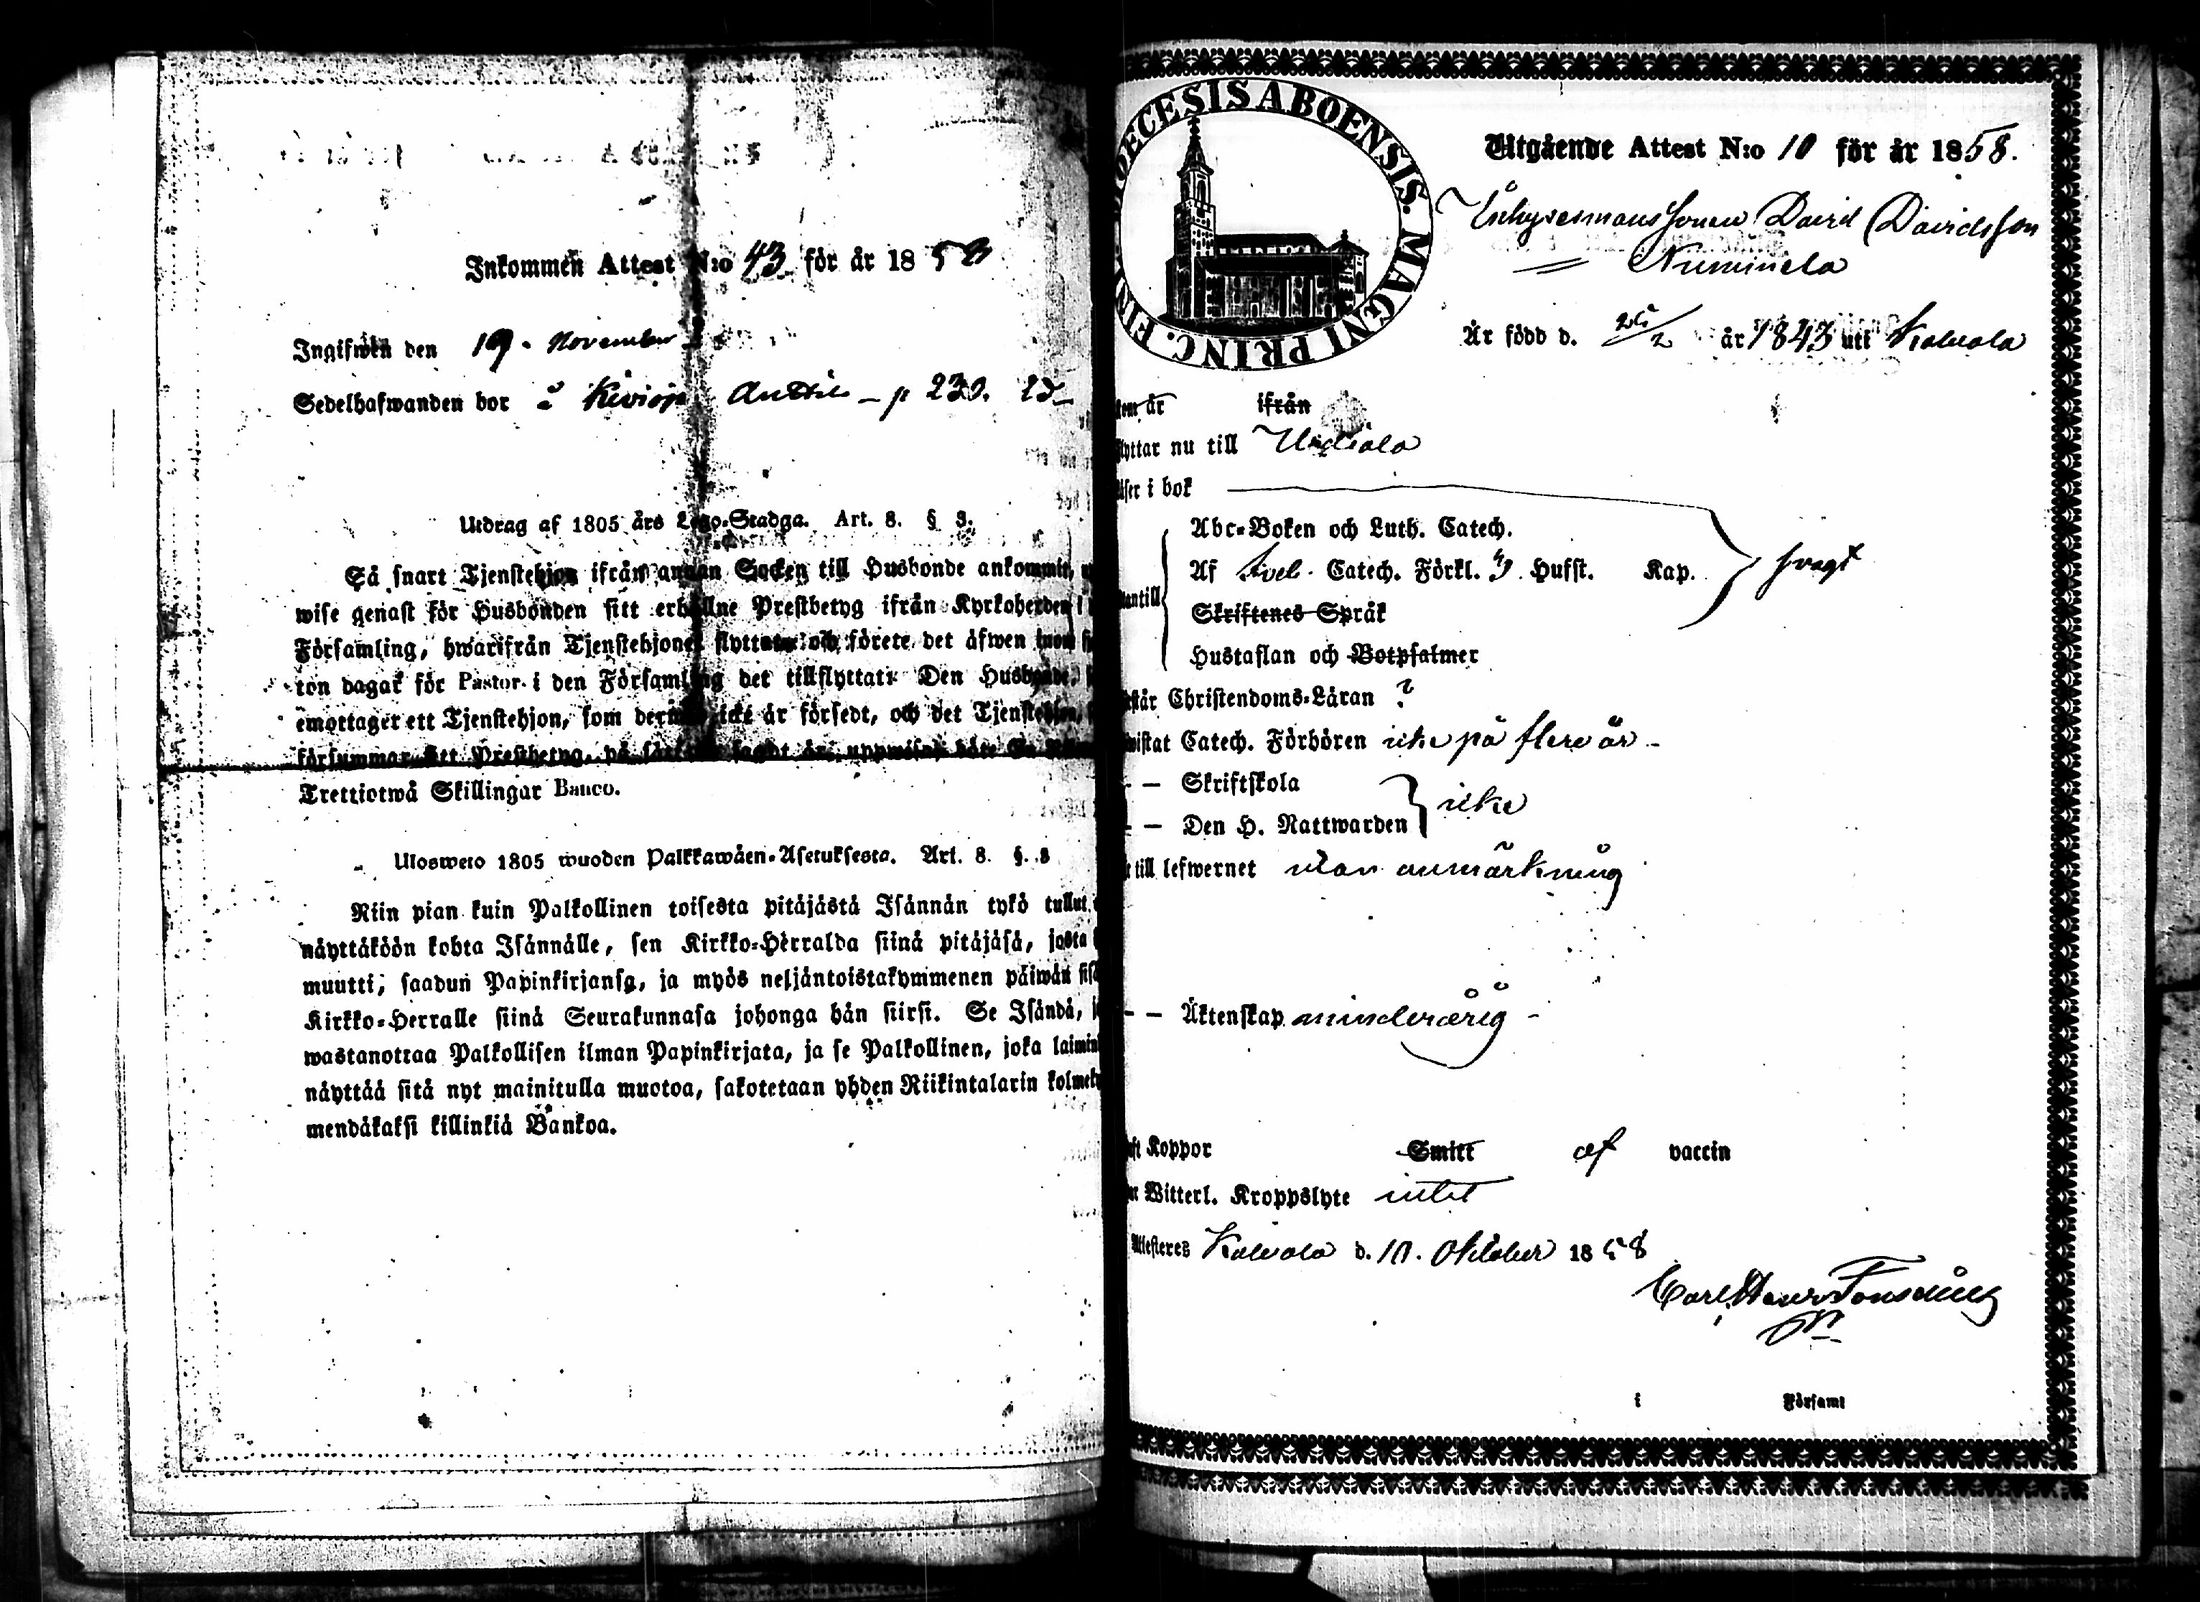 Inkommen Attest N:o 43 för år 1858
Ingifwen den 19. November
Sedelhafwanden bor å p 230.
Utdrag af 1805 års Lego-Stadga. Art. 8. § 3.
Så snart Tjenstehjon ifrån annan Socken till Husbonde ankommit,
wise genast för Husbonden sitt erhållne Prestbetyg ifrån Kyrkoherden i
Församling, hwarifrån Tjenstehjonet flyttat och förete det äfwen inom
ton dagar för Pastor i den Församling det tillflyttat. Den Husbonde,
emottager ett Tjenstehjon, som dermed icke är försedt, och det Tjenstehjon,
försummar det Prestbetyg, på sätt som sagdt är, uppwisa, böte
Trettiotwå Skillingar Banco.
Ulosweto 1805 wuoden Palkkawäen-Asetuksesta. Art. 8. §. 3
Niin pian kuin Palkollinen toisesta pitäjästä Isännän tykö tullut
näyttäköön kohta Isännälle, sen Kirkko-Herralda siinä pitäjäsä, josta
muutti, saadun Papinkirjansa, ja myös neljäntoistakymmenen päiwän
Kirkko-Herralle siinä Seurakunnasa johonga hän siirsi. Se Isändä,
wastanottaa Palkollisen ilman Papinkirjata, ja se Palkollinen, joka
näyttää sitä nyt mainitulla muotoa, sakotetaan yhden Riikintalarin
mendäkaksi killinkiä Bankoa.
DIOECESIS ABOENSIS. MAGNI PRINC. FIN
Utgående Attest N:o 10 för år 1858.
Inhysesmanssonen David Davidsson
Nummela
Är född d. 25/2 år 1843 uti Kalvola
är ifrån
flyttar nu till Urdiala
läser i bok
Abc-Boken och Luth. Catech.
Af Sveb. Catech. Förkl. 3 Hufst. Kap. svagt
utantill
Skriftenes Språk
Hustaflan och Botpsalmer
Christendoms-Läran ?
Catech. Förhören icke på flere år
— — Skriftskola
— — Den H. Nattwarden icke
till lefwernet utan anmärkning
— — Äktenskap minderårig
Koppor Smitt af vaccin
Witterl. Kroppslyte intet
Attesteres Kalvola d. 10. Oktober 1858
Carl Henr
i Församl